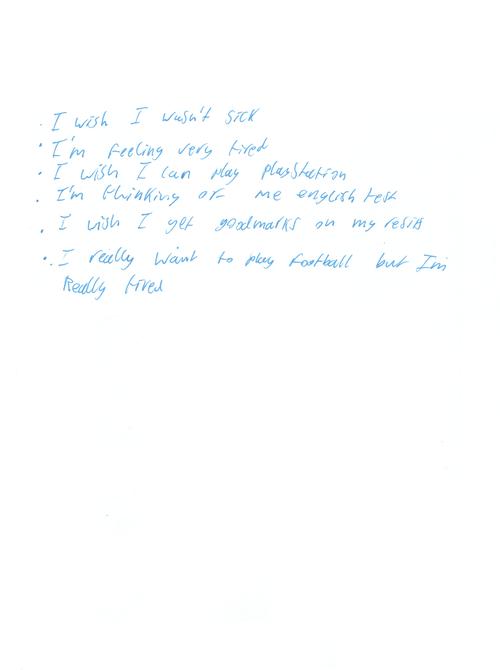 . I wish I wasn't sick
. I'm feeling very tired
. I wish I can play playstation
. I'm thinking of me english test
. I wish I get goodmarks on my resits
. I really want to play football but I'm
Really tired